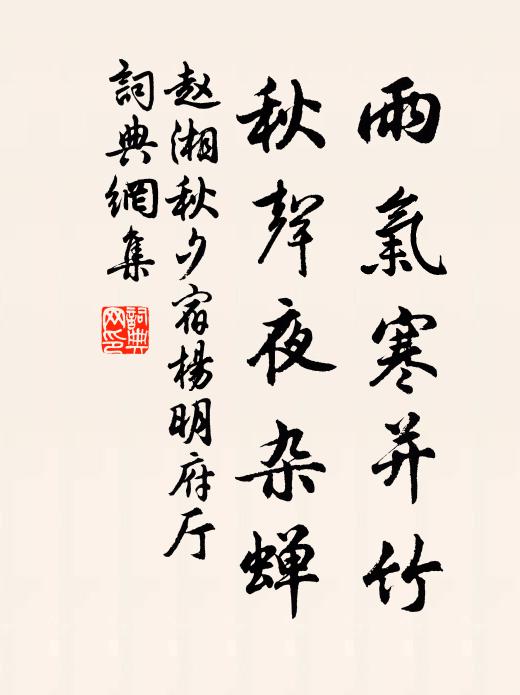 雨氣寒并竹
秋聲夜杂蝉
赵湘秋夕宿楊明府厅
詞典網集
詞典网印